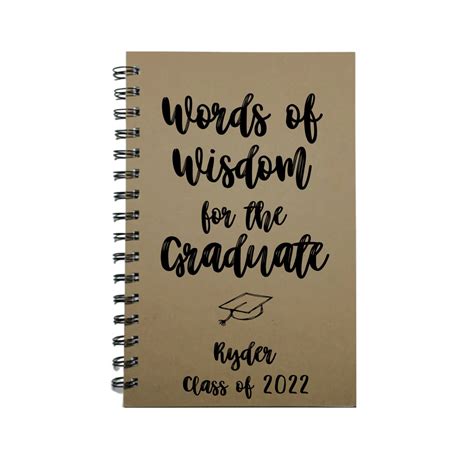 Words of
Wisdom
for the
Graduate
Ryder
Class of 2022